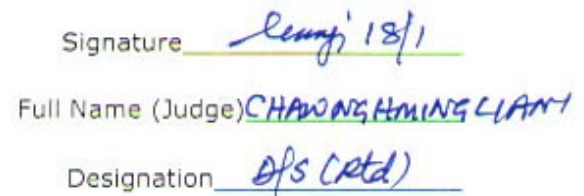 Signature 18/1
Full Name (Judge) CHAWNGHMINGLIANI
Designation D/S (Rtd)